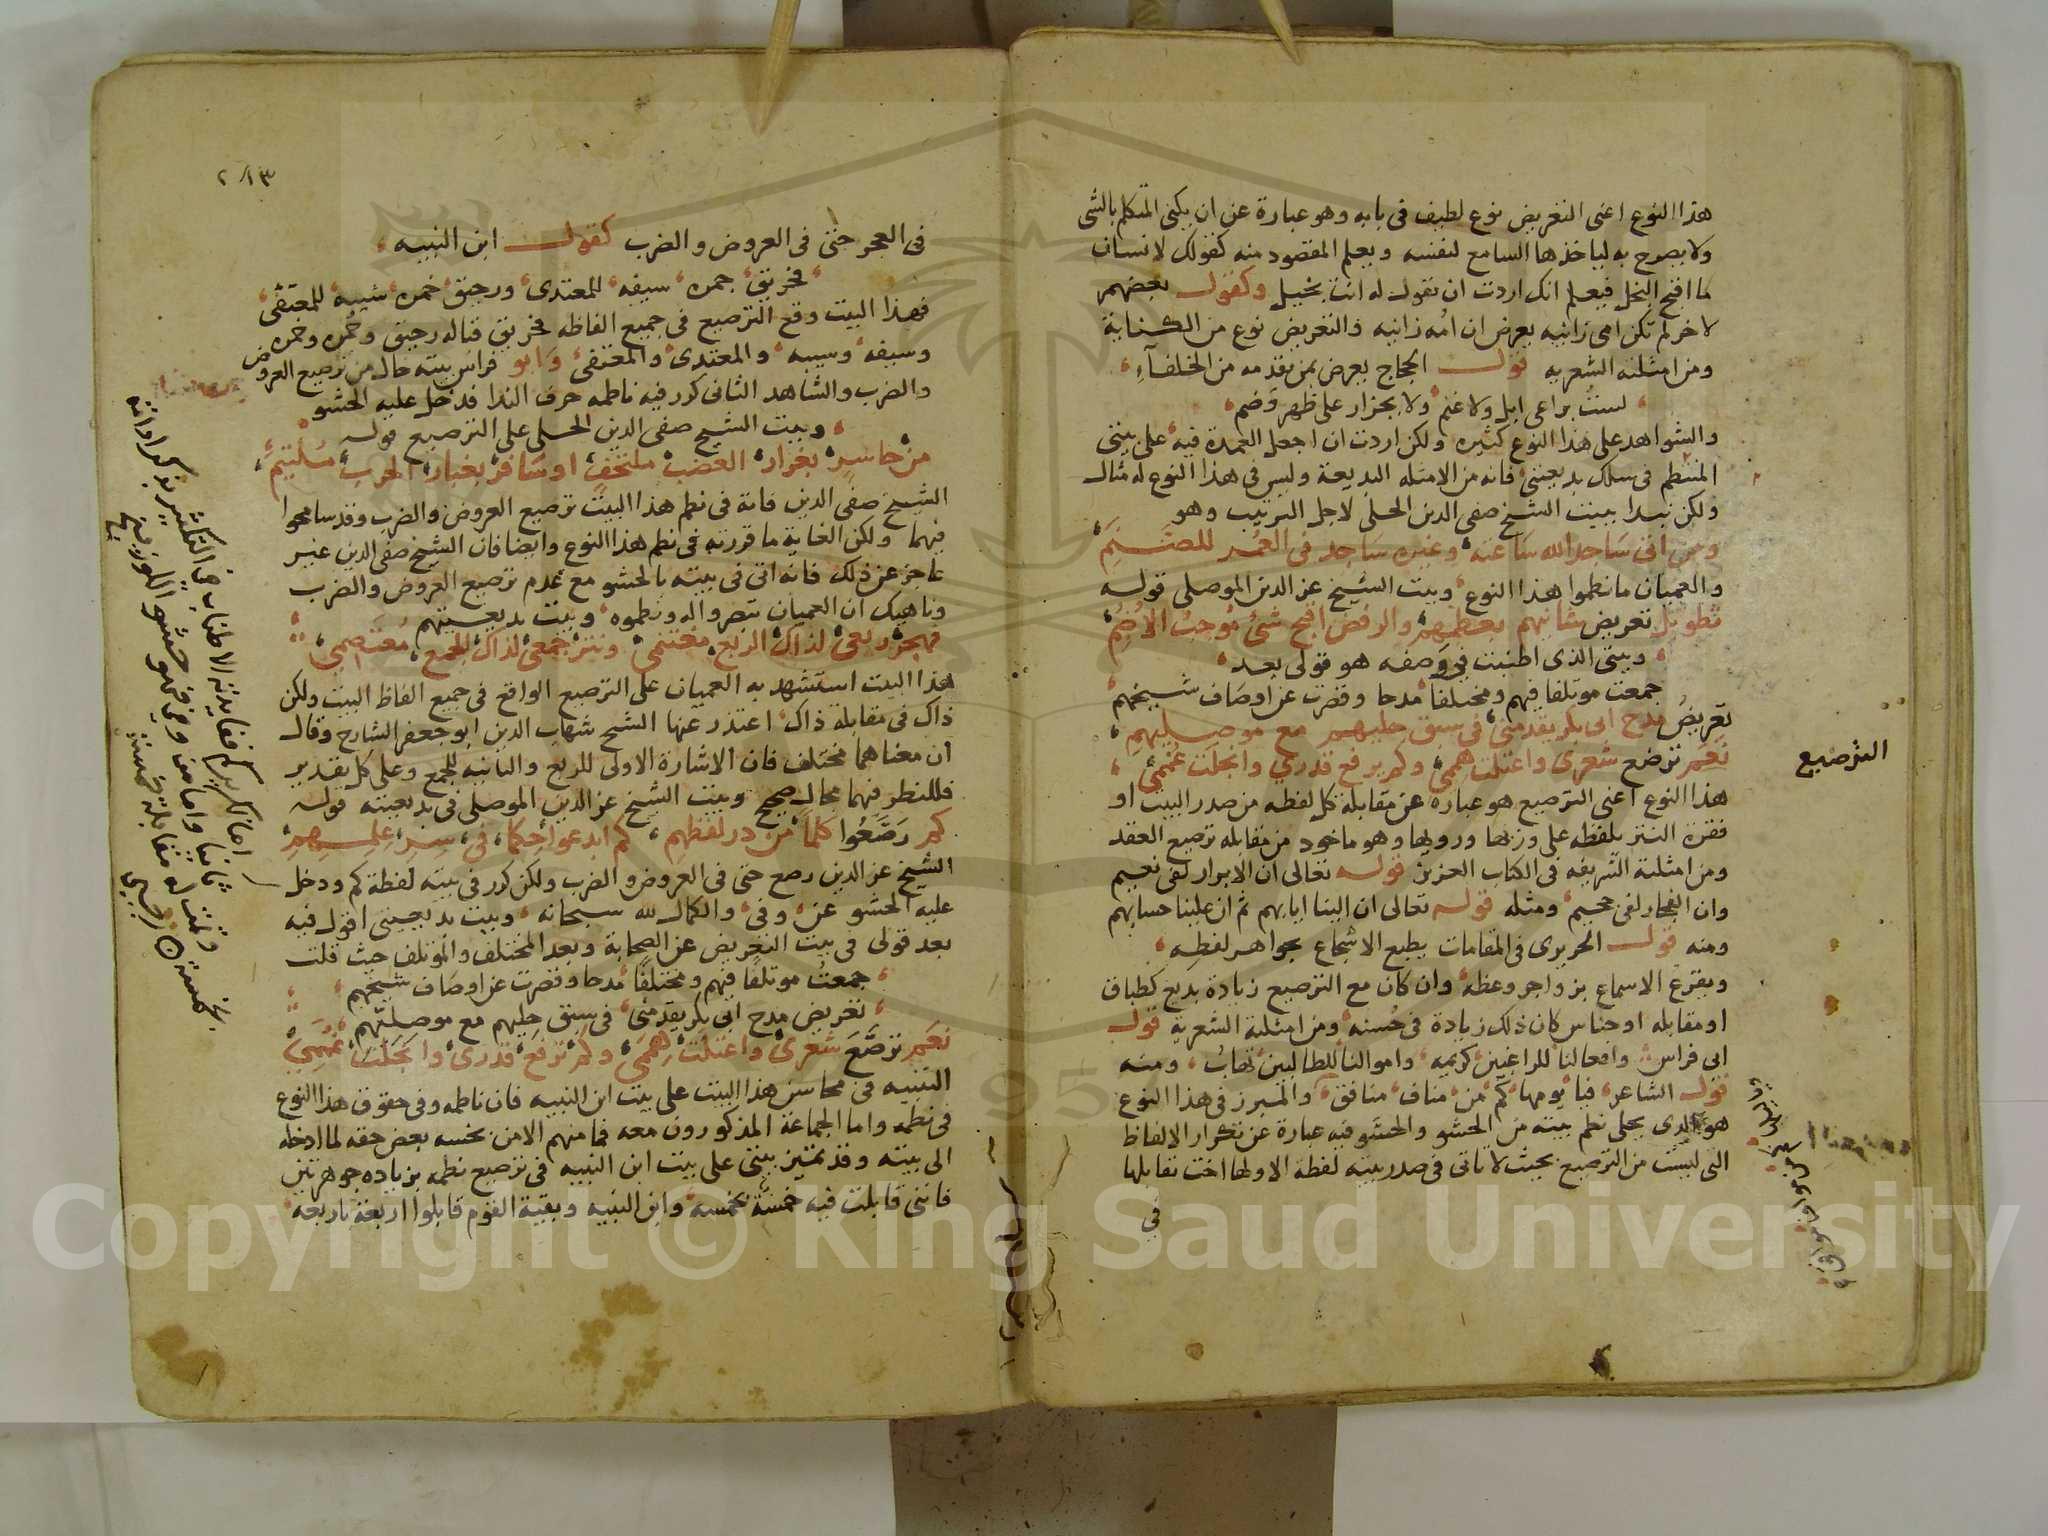 هذا النوع اعنى التعريض نوع لطيف فى بابه وهو عبارة عن ان يكنى المتكلم بالشى
ولا يصرح به لياخذها السامع لنفسه ويعلم المقصود منه كقولك لانسان
ما اقبح البخل فيعلم انك اردت ان تقول له انت بخيل وكقول بعضهم
لاخر لم تكن امى زانيه يعرض ان امه زانيه والتعريض نوع من الكناية
ومن امثلته الشعريه قول الحجاج يعرض بمن تقدمه من الخلفآء
لست براعى ابل ولا غنم ولا بجزار على ظهر وضم
والشواهد على هذا النوع كثيره ولكن اردت ان اجعل العمدة فيه على بيتى
المنتظم فى سلك بديعيتى فانه من الامثله البديعة وليس فى هذا النوع له مثال
ولكن نبدا ببيت الشيخ صفى الدين الحلى لاجل الترتيب وهو
ومن اتى ساجدا لله ساعته وغيره ساجد فى العمر للصنم
والعميان ما نظموا هذا النوع وبيت الشيخ عز الدين الموصلى قوله
تطويل تعريض شانيهم يعظمهم والرفض اقبح شئ موجب الاضم
وبيتى الذى اطنبت فى وصفه هو قولى بعد
جمعت موتلفا فيهم ومختلفا مدحا وقصرت عن اوصاف شيخهم
تعريض مدح ابى بكر يقدمنى فى سبق حليهم مع موصليهم
نعم ترصع شعرى واعتلت هممى وكم يرفع قدرى وانجلت غممى
الترصيع
هذا النوع اعنى الترصيع هو عباره عن مقابلة كل لفظه من صدر البيت او
فقرة النثر بلفظه على وزنها ورويها وهو ماخوذ من مقابله ترصيع العقد
ومن امثلته الشريفه فى الكتاب العزيز قوله تعالى ان الابرار لفى نعيم
وان الفجار لفى جحيم ومثله قوله تعالى ان الينا ايابهم ثم ان علينا حسابهم
ومنه قول الحريرى فى المقامات يطبع الاسجاع بجواهر لفظه
ويقرع الاسماع بزواجر وعظه وان كان مع الترصيع زيادة بديع كطباق
او مقابله او جناس كان ذلك زيادة فى حسنه ومن امثلته الشعرية قول
ابى فراس وافعالنا للراغبين كريمه واموالنا للطالبين نهاب ومنه
قول الشاعر فيا يومها كم من مناف منافق والمبرز فى هذا النوع
هو الذى يخلى نظم بيته من الحشو والحشو فيه عبارة عن تكرار الالفاظ
التى ليست من الترصيع بحيث لا ياتى فى صدر بيته لفظه الا ولها اخت تقابلها
فى
٢١٣
فى العجز حتى فى العروض والضرب كقول ابن النبيه
فحريق جمرة سيفه للمعتدى ورحيق خمرة سيبه للمعتفى
فهذا البيت وقع الترصيع فى جميع الفاظه فحريق قباله رحيق وجمره وخمره
وسيفه وسيبه والمعتدى والمعتفى وابو فراس بيته خال من ترصيع العروض
والضرب والشاهد الثانى كرر فيه ناظمه حرف الندا فدخل عليه الحشو
وبيت الشيخ صفى الدين الحلى على الترصيع قوله
من حاسر بغرار العضب ملتحف او سافر بغبار الحرب ملتثم
الشيخ صفى الدين فاته فى نظم هذا البيت ترصيع العروض والضرب وقد سامحوا
فيهما ولكن الغاية ما قررته فى نظم هذا النوع وايضا فان الشيخ صفى الدين غير
عاجز عن ذلك فانه اتى فى بيته بالحشو مع عدم ترصيع العروض والضرب
وناهيك ان العميان تبصروا له ونظموه وبيت بديعيتهم
فهجر ربعى لذاك الربع مغتنمى ونثر جمعى لذاك الجمع معتصمى
هذا البيت استشهد به العميان على الترصيع الواقع فى جميع الفاظ البيت ولكن
ذاك فى مقابلة ذاك اعتذر عنها الشيخ شهاب الدين ابو جعفر الشارح وقال
ان معناهما مختلف فان الاشارة الاولى للربع والثانيه للجمع وعلى كل تقدير
فللنظر فيهما مجال صحيح وبيت الشيخ عز الدين الموصلى فى بديعيته قوله
كم رصعوا كلما من در لفظهم كم ابدعوا حكما فى سر علمهم
الشيخ عز الدين رصع حتى فى العروض والضرب ولكن كرر فى بيته لفظة كم ودخل
عليه الحشو عن وفى والكمال لله سبحانه وبيت بديعيتى اقول فيه
بعد قولى فى بيت التعريض عن الصحابة وبعد المختلف والموتلف حيث قلت
جمعت موتلفا فيهم ومختلفا مدحا وقصرت عن اوصاف شيخهم
تعريض مدح ابى بكر يقدمنى فى سبق حليهم مع موصليهم
نعم ترصع شعرى واعتلت هممى وكم ترفع قدرى وانجلت غممى
التنبيه فى محاسن هذا البيت على بيت ابن النبيه فان ناظمه وفى حقوق هذا النوع
فى نظمه واما الجماعة المذكورون معه فما منهم الا من بخسه بعض حقه لما ادخله
الى بيته وقد تميز بيتى على بيت ابن النبيه فى ترصيع نظمه بزياده جوهرتين
فاننى قابلت فيه خمسة بخمسه وابن النبيه وبقية القوم قابلوا اربعة باربعه
Copyright © King Saud University